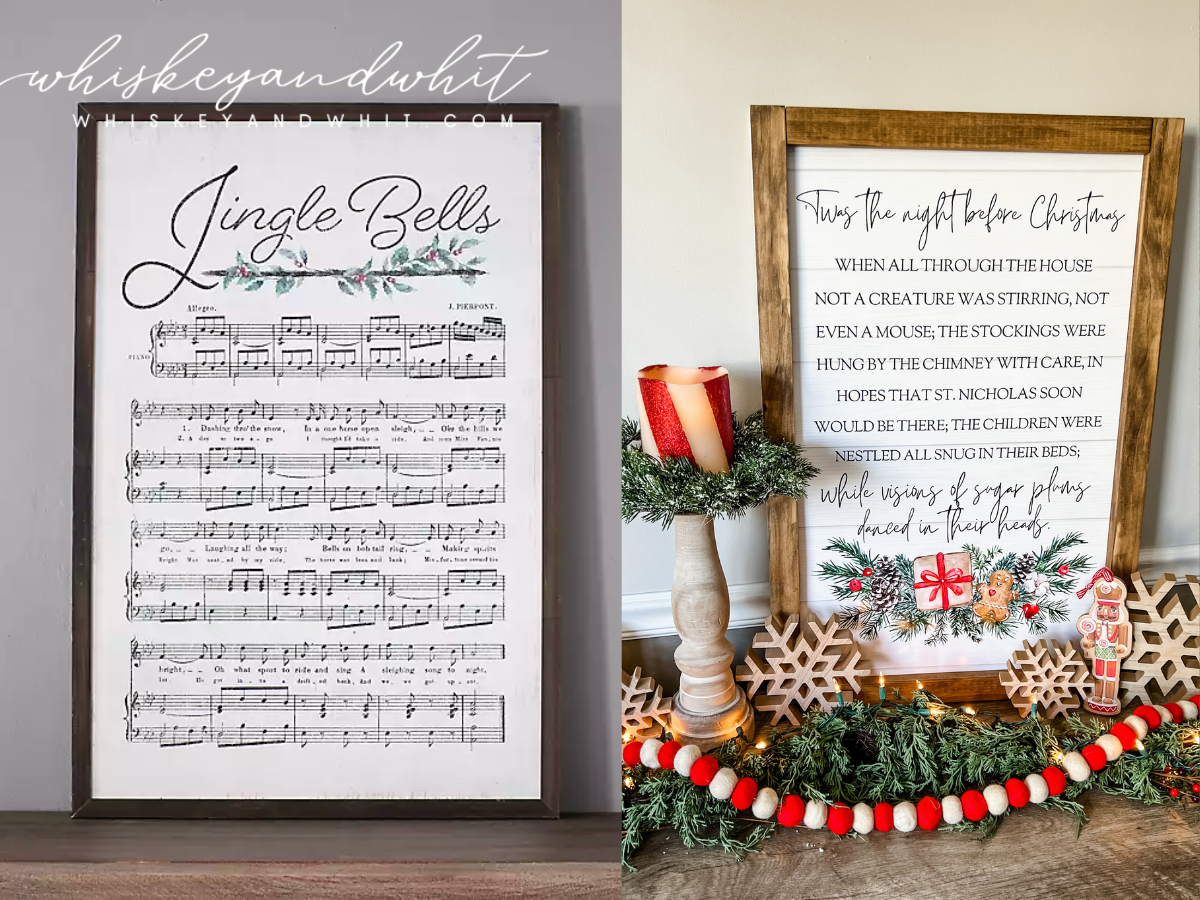 whiskeyandwhit
WHISKEYANDWHIT.COM
Jingle Bells
Allegro.
J. PIERPONT.
PIANO
1. Dashing thro' the snow, In a one horse open sleigh, O'er the hills we
2. A day or two a - go I thought I'd take a ride, And soon Miss Fan-nie
go, Laughing all the way; Bells on bob tail ring, Making spirits
Bright Was seat_ed by my side, The horse was lean and lank; Mis_for_tune seemed his
bright, Oh what sport to ride and sing A sleighing song to night,
lot, He got in_to a drift_ed bank, And we, we got up_sot,
'Twas the night before Christmas
WHEN ALL THROUGH THE HOUSE
NOT A CREATURE WAS STIRRING, NOT
EVEN A MOUSE; THE STOCKINGS WERE
HUNG BY THE CHIMNEY WITH CARE, IN
HOPES THAT ST. NICHOLAS SOON
WOULD BE THERE; THE CHILDREN WERE
NESTLED ALL SNUG IN THEIR BEDS;
while visions of sugar plums
danced in their heads.